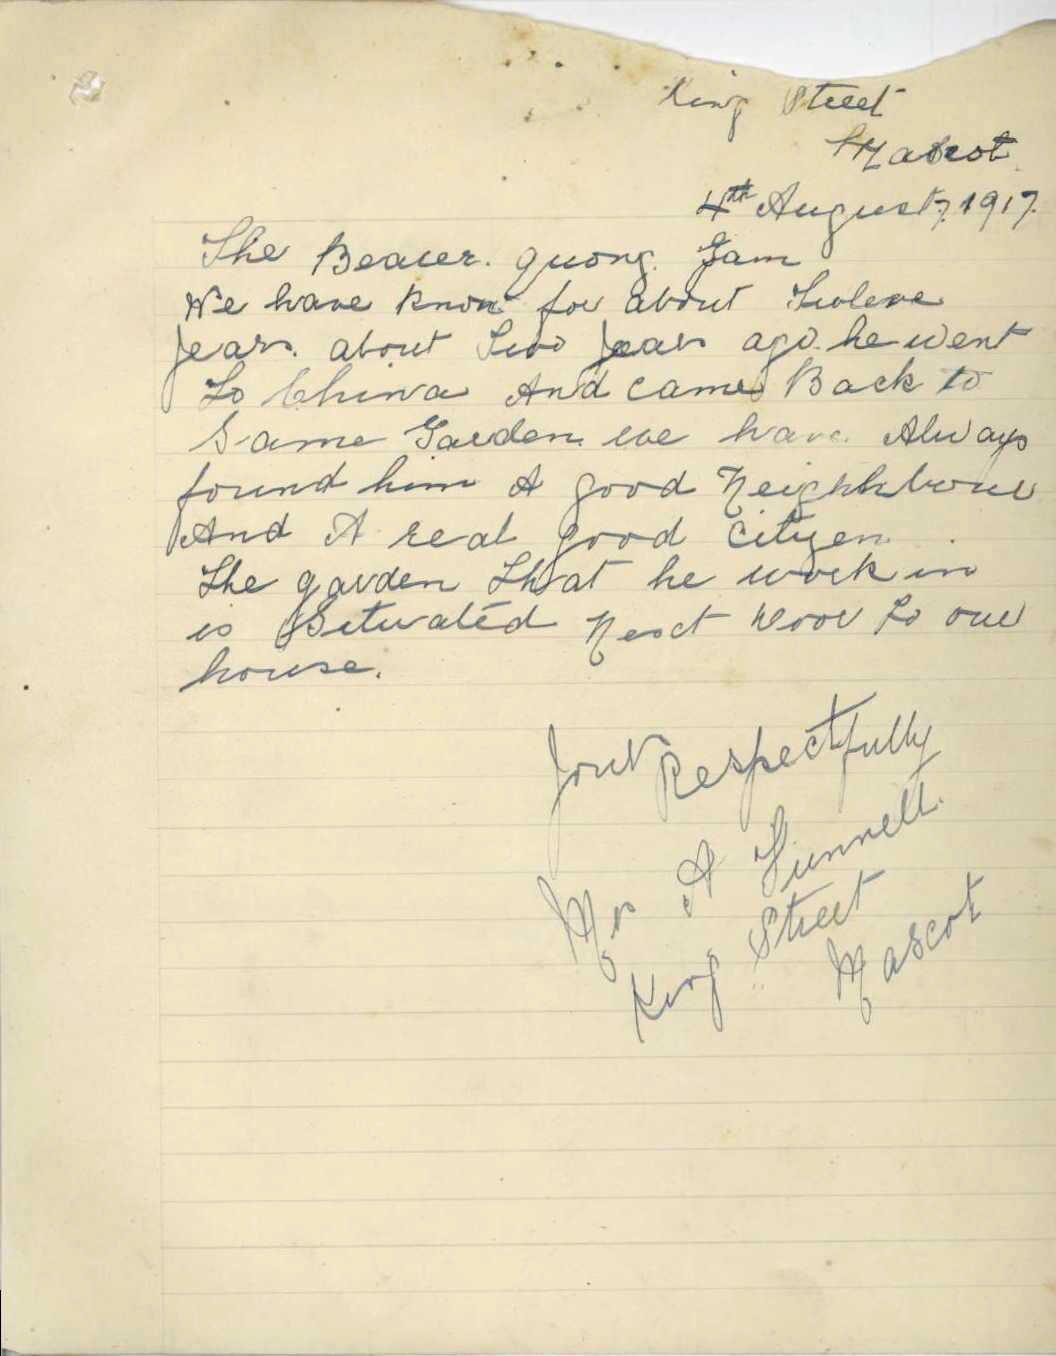 King Street
Mascot
4th August, 1917.
The Bearer. Quong. Gam
We have Known for about Twleve
years. about Two years ago. he went
To China And came Back to
Same Garden. we have Always
found him A good Neighbour
And A real good Cityen.
The garden That he work in
is Setuated Next Door To our
house.
Your Respectfully
Mrs A Funnell.
King Street
Mascot